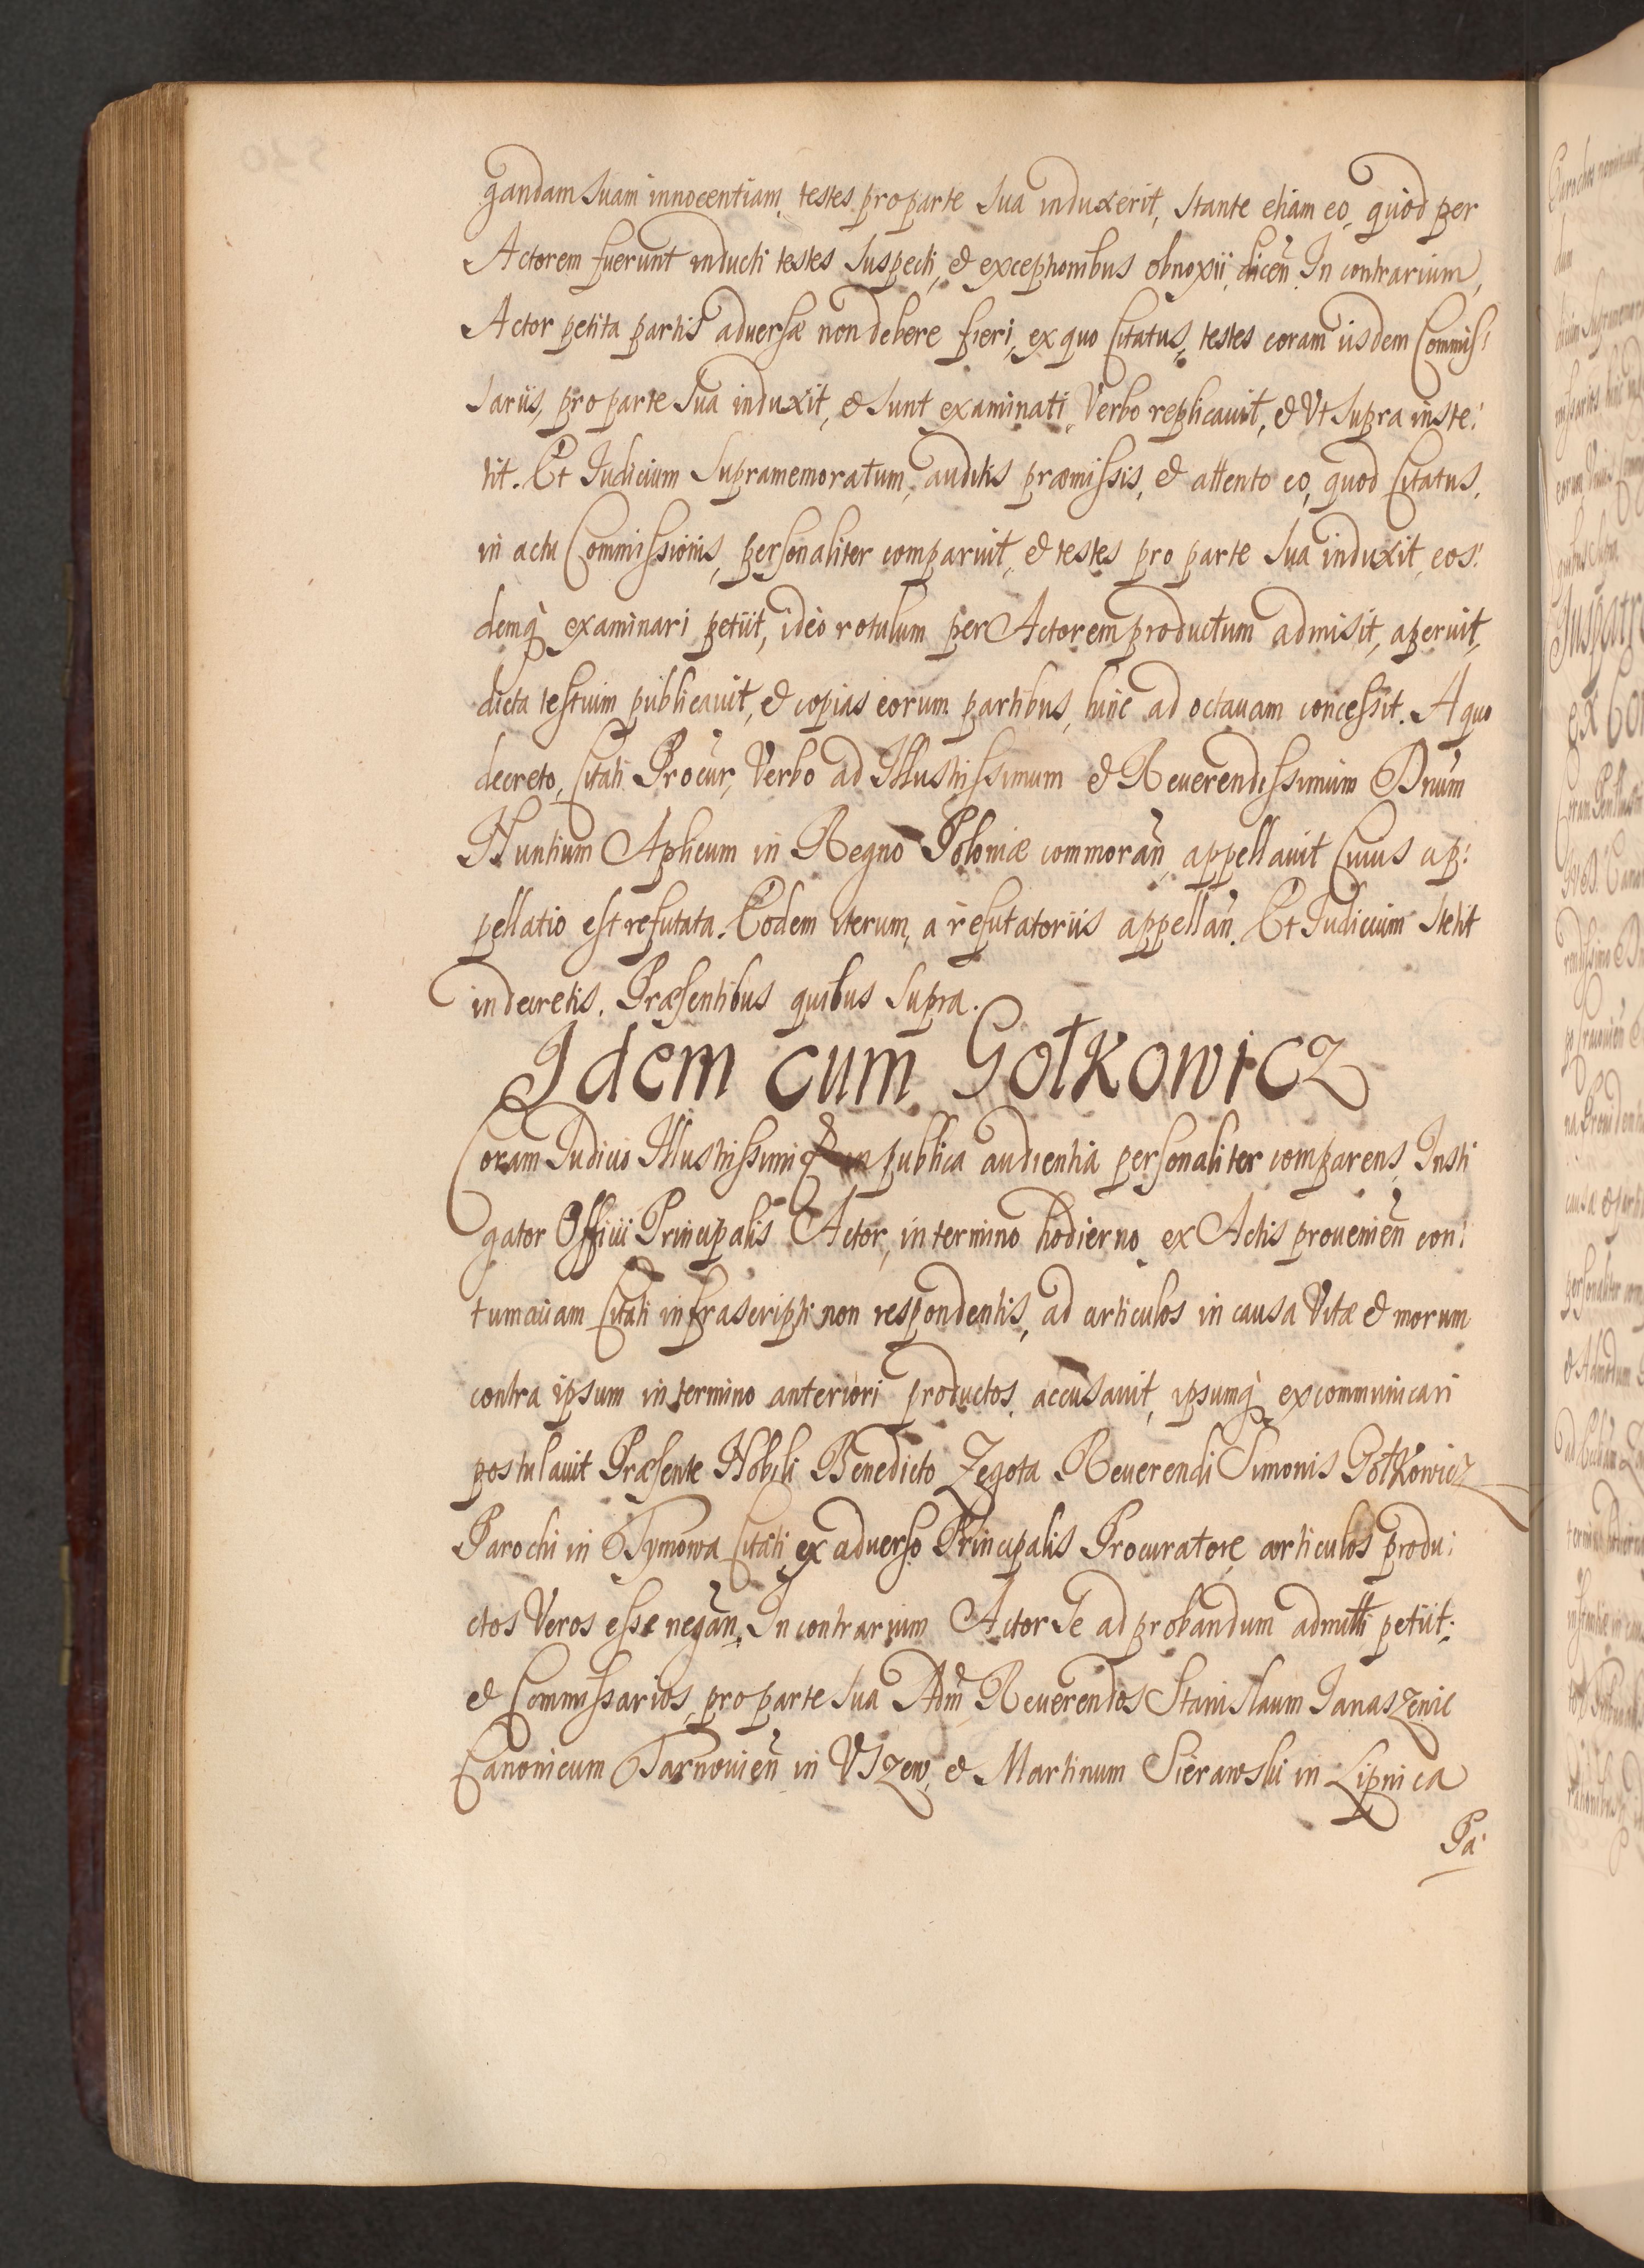 gandam suam innocentiam, testes pro parte sua induxerit, stante etiam eo, quod per
Actorem fuerunt inducti testes suspecti, et exceptionibus obnoxii, dicen̄. In contrarium,
Actor petita partis adversæ non debere fieri, ex quo Citatus, testes coram iisdem Commis:
sariis, pro parte sua induxit, et sunt examinati, Verbo replicavit, et Ut supra inste:
tit. Et Judicium supramemoratum, auditis præmissis, et attento eo, quod Citatus,
in actu Commissionis, personaliter comparuit, et testes pro parte sua induxit, eos:
demq̀ examinari petiit, ideo rotulum per Actorem productum admisit, aperuit,
dicta testium publicavit, et copias eorum partibus, hinc ad octavam concessit. A quo
decreto, Citati Procur, Verbo ad Illustrissimum et Reverendissimum Dnum
Nuntium Aplicum in Regno Poloniæ commoran̄, appellavit Cuius ap:
pellatio est refutata. Eodem iterum, a refutatoriis appellan̄. Et Judicium stetit
in decretis. Præsentibus quibus supra.
Idem cum Gołkowicz
Coram Judicio Illustrissimi publica audientia personaliter comparens, Insti
gator Officii Principalis Actor, in termino hodierno ex Actis provenien̄ con:
tumaciam Citati infrascripti non respondentis, ad articulos in causa Vitæ et morum
contra ipsum in termino anteriori productos, accusavit, ipsumq̀ excommunicari
postulavit Præsente Nobili Benedicto Zegota Reverendi Simonis Gołkowicz
Parochi in Tymowa Citati ex adverso Principalis Procuratore, articulos produ:
ctos Veros esse negan̄. In contrarium Actor se ad probandum admitti petiit:
et Commissarios, pro parte sua Adm̄ Reverendos Stanislaum Janaszewic
Canonicum Tarnovien̄ in Uszew, et Martinum Sierawski in Lipnica
Pa: